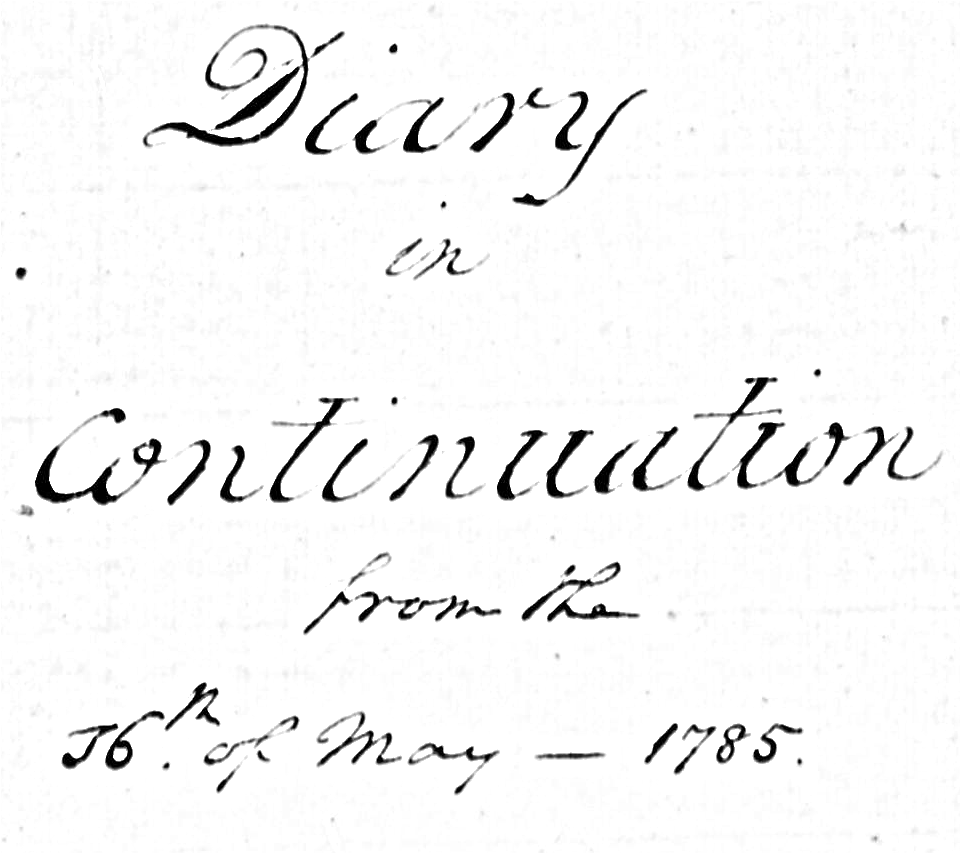 Diary
in
Continuation
from the
26th. of May — 1785.